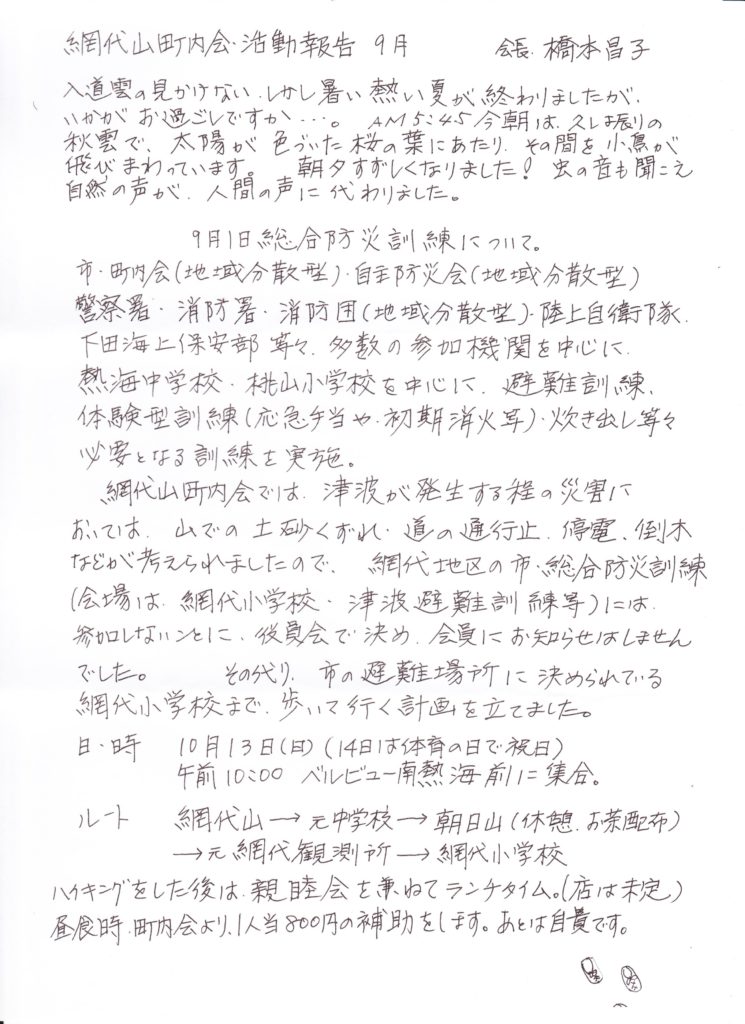 網代山町内会・活動報告 9月 会長 橋本昌子
入道雲の見かけない、しかし暑い熱い夏が終わりましたが、
いかがお過ごしですか…。 AM5:45今朝は、久しぶ振りの
秋雲で、太陽が色づいた桜の葉にあたり、その間を小鳥が
飛びまわっています。 朝夕すずしくなりました! 虫の音も聞こえ
自然の声が、人間の声に代わりました。
9月1日総合防災訓練について。
市・町内会(地域分散型)・自主防災会(地域分散型)
警察署・消防署・消防団(地域分散型)・陸上自衛隊、
下田海上保安部等々、多数の参加機関を中心に、
熱海中学校・桃山小学校を中心に、避難訓練、
体験型訓練(応急手当や、初期消火等)・炊き出し等々
必要となる訓練を実施。
網代山町内会では、津波が発生する程の災害に
おいては、山での土砂くずれ・道の通行止、停電、倒木
などが考えられましたので、 網代地区の市・総合防災訓練
(会場は、網代小学校・津波避難訓練等)には、
参加しないことに、役員会で決め、会員にお知らせはしません
でした。 その代り、市の避難場所に決められている
網代小学校まで、歩いて行く計画を立てました。
日・時 10月13日(日)(14日は体育の日で祝日)
午前10:00 ベルビュー南熱海前に集合。
ルート 網代山→元中学校→朝日山(休憩、お茶配布)
→元網代観測所→網代小学校
ハイキングをした後は、親睦会を兼ねてランチタイム。(店は未定)
昼食時、町内会より、1人当800円の補助をします。あとは自費です。